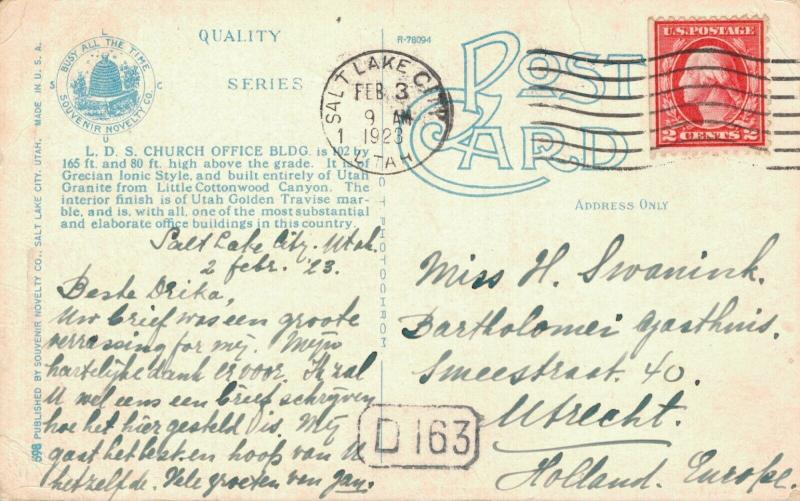 QUALITY
SERIES
BUSY ALL THE TIME
SOUVENIR NOVELTY CO.
S L C U
R-78094
POST
CARD
SALT LAKE CITY
FEB 3
9 AM
1923
UTAH
U.S. POSTAGE
2 CENTS 2
L. D. S. CHURCH OFFICE BLDG. is 102 by
165 ft. and 80 ft. high above the grade. It is
Grecian Ionic Style, and built entirely of Utah
Granite from Little Cottonwood Canyon. The
interior finish is of Utah Golden Travise mar-
ble, and is, with all, one of the most substantial
and elaborate office buildings in this country.
ADDRESS ONLY
698 PUBLISHED BY SOUVENIR NOVELTY CO., SALT LAKE CITY, UTAH. MADE IN U. S. A.
PHOTOCHROM
Salt Lake City. Utah.
2 febr. '23.
Beste Drika,
Uw brief was een groote
verrassing for mij. Mijn
hartelijke dank er voor. Ik zal
U wel eens een brief schrijven
hoe het hier gesteld is. Mij
gaat het best en hoop van U
hetzelfde. Vele groeten van Jan.
Miss H. Swanink.
Bartholomei gasthuis.
Smeestraat. 40.
Utrecht.
Holland. Europe.
D 163